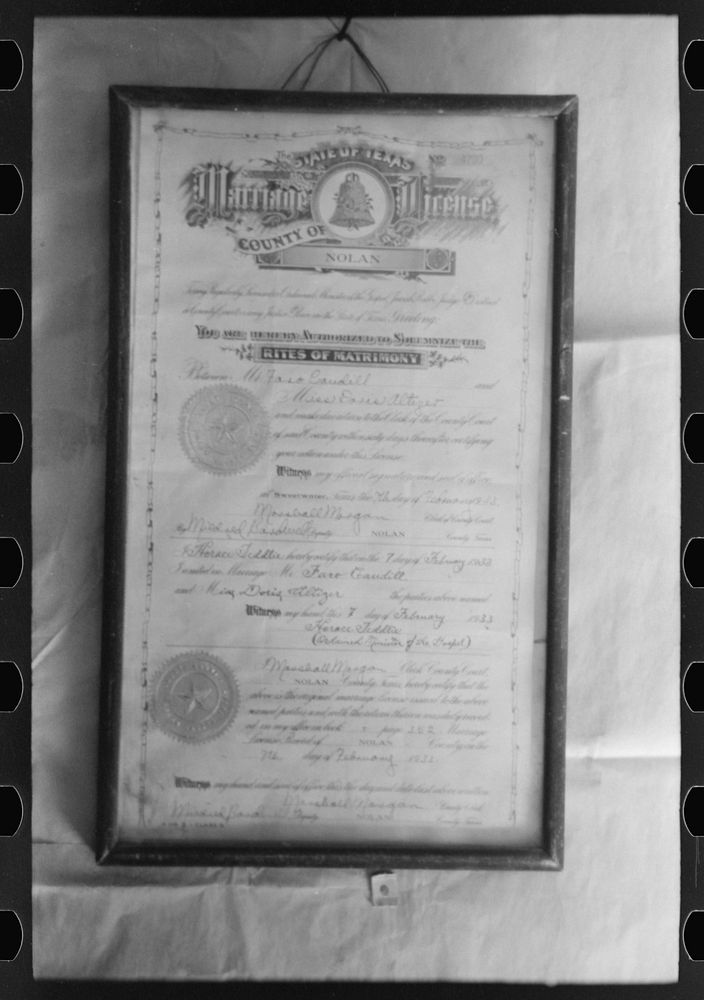 The STATE OF TEXAS
No
Marriage License
COUNTY OF
NOLAN
To any Regularly Licensed or Ordained Minister of the Gospel, Jewish Rabbi, Judge District
or County Court or any Justice Peace in the State of Texas Greeting:
YOU ARE HEREBY AUTHORIZED TO SOLEMNIZE THE
RITES OF MATRIMONY
Between Mr. Faro Caudill and
Miss Doris Altizer
and make due return to the Clerk of the County Court
of said County within sixty days thereafter certifying
your action under this license.
Witness my official signature and seal of office
at Sweetwater, Texas the 7th day of February 1933
Marshall Morgan Clerk of County Court
By Mildred Deputy NOLAN County Texas
I Horace Teddlie hereby certify that on the 7 day of February 1933
I united in Marriage Mr. Faro Caudill
and Miss Doris Altizer the parties above named
Witness my hand this 7 day of February 1933
Horace Teddlie
(Ordained Minister of the Gospel)
I Marshall Morgan Clerk County Court,
NOLAN County Texas, hereby certify that the
above is the original marriage license issued to the above
named parties and with the return thereon was duly record-
ed in my office in book page 322 Marriage
License Record of NOLAN County on the
7th day of February 1933
Witness my hand and seal of office this the day and date last above written
Marshall Morgan County Clerk
Mildred Deputy NOLAN County Texas